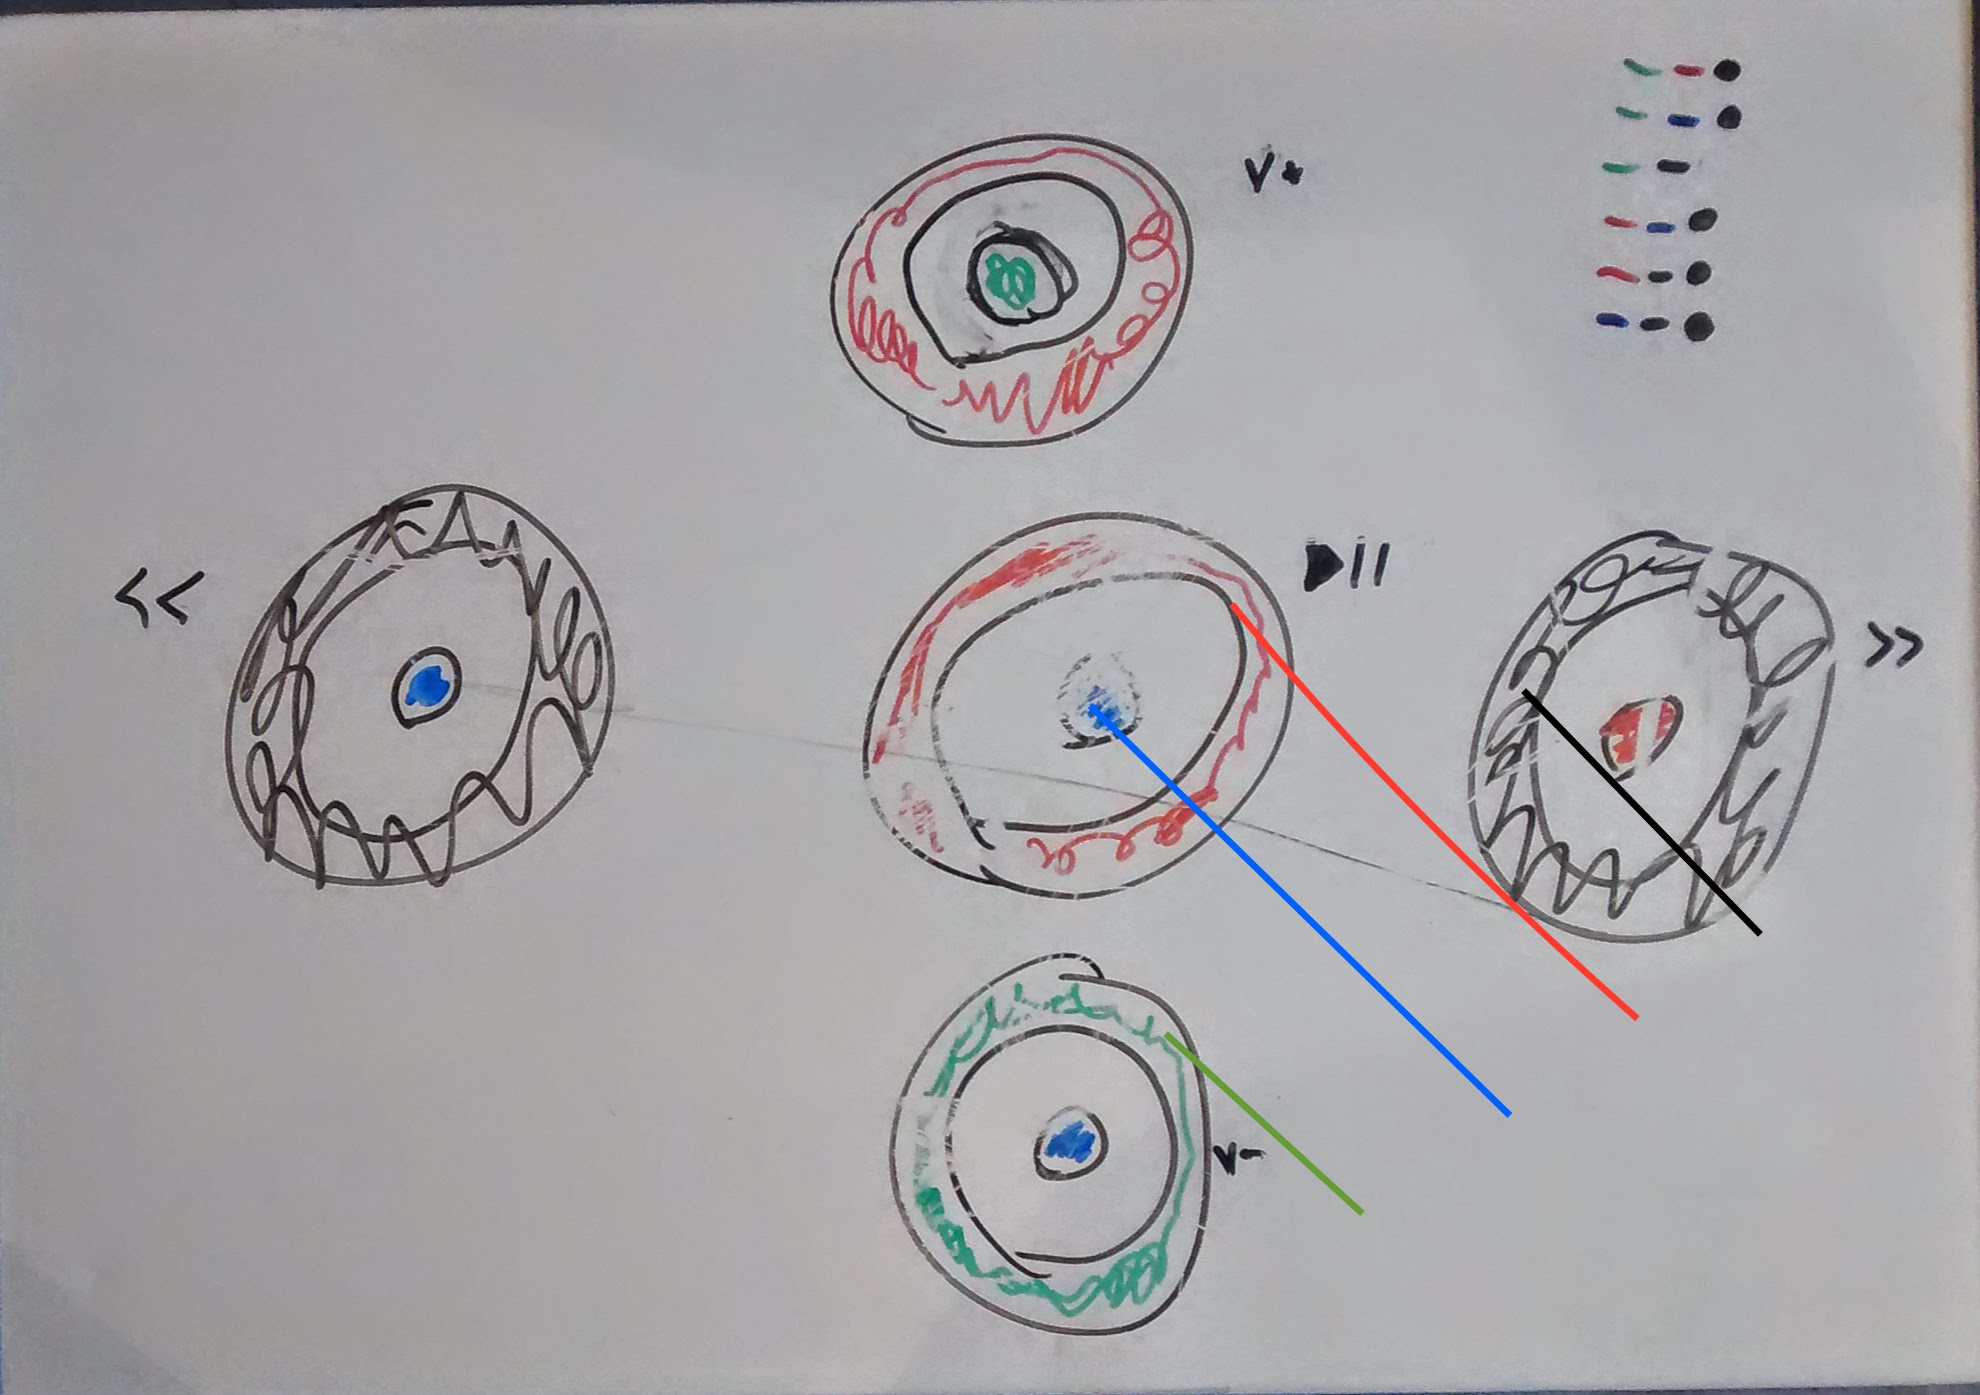 V+
<<
▶||
>>
V-